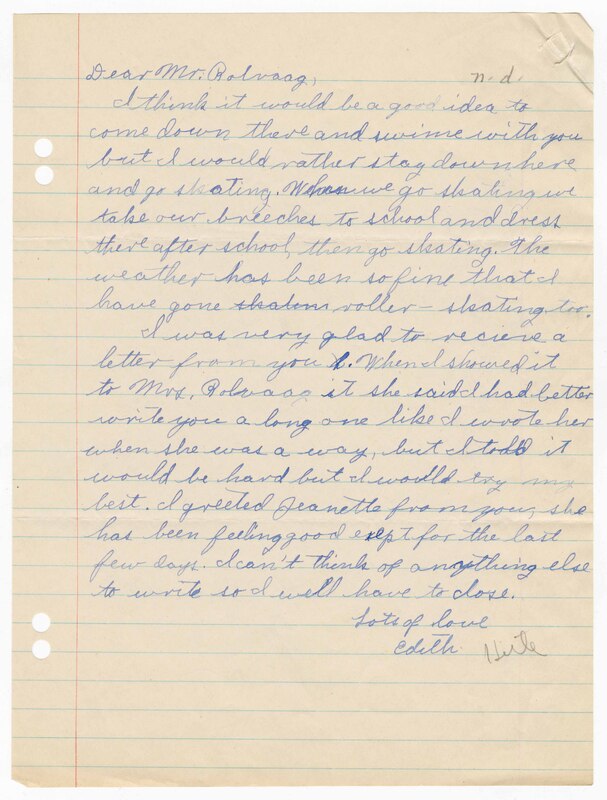 Dear Mr. Rolvaag,
n.d.
I think it would be a good idea to
come down there and swime with you
but I would rather stay down here
and go skating. When we go skating we
take our breeches to school and dress
there after school, then go skating. The
weather has been so fine that I
have gone skateing roller-skating too.
I was very glad to recieve a
letter from you. When I showed it
to Mrs. Rolvaag it she said I had better
write you a long one like I wrote her
when she was a way, but I told it
would be hard but I would try my
best. I greeted Jeanette from you, she
has been feeling good exept for the last
few days. I can't think of anything else
to write so I well have to close.
Lots of love
Edith